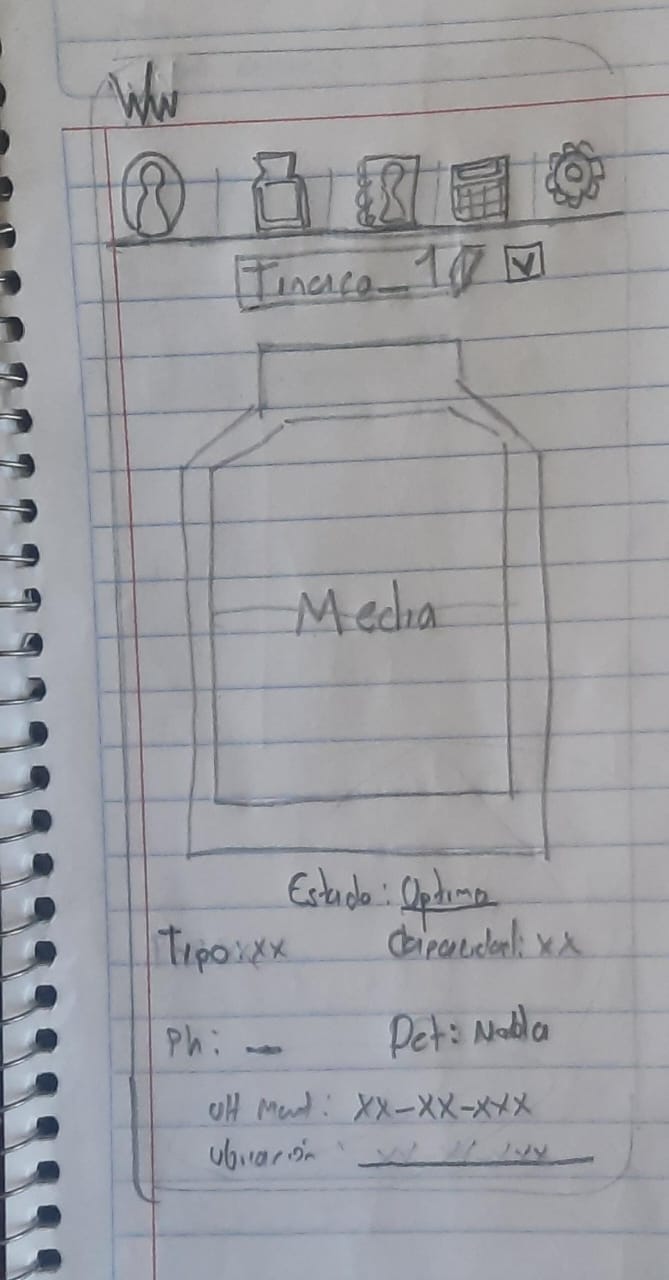 WW
Tinaco_1
Media
Estado: Optimo
Tipo: xx Capacidad: xx
Ph: — Det: Nobla
Ult Mant: xx-xx-xxx
Ubicación: